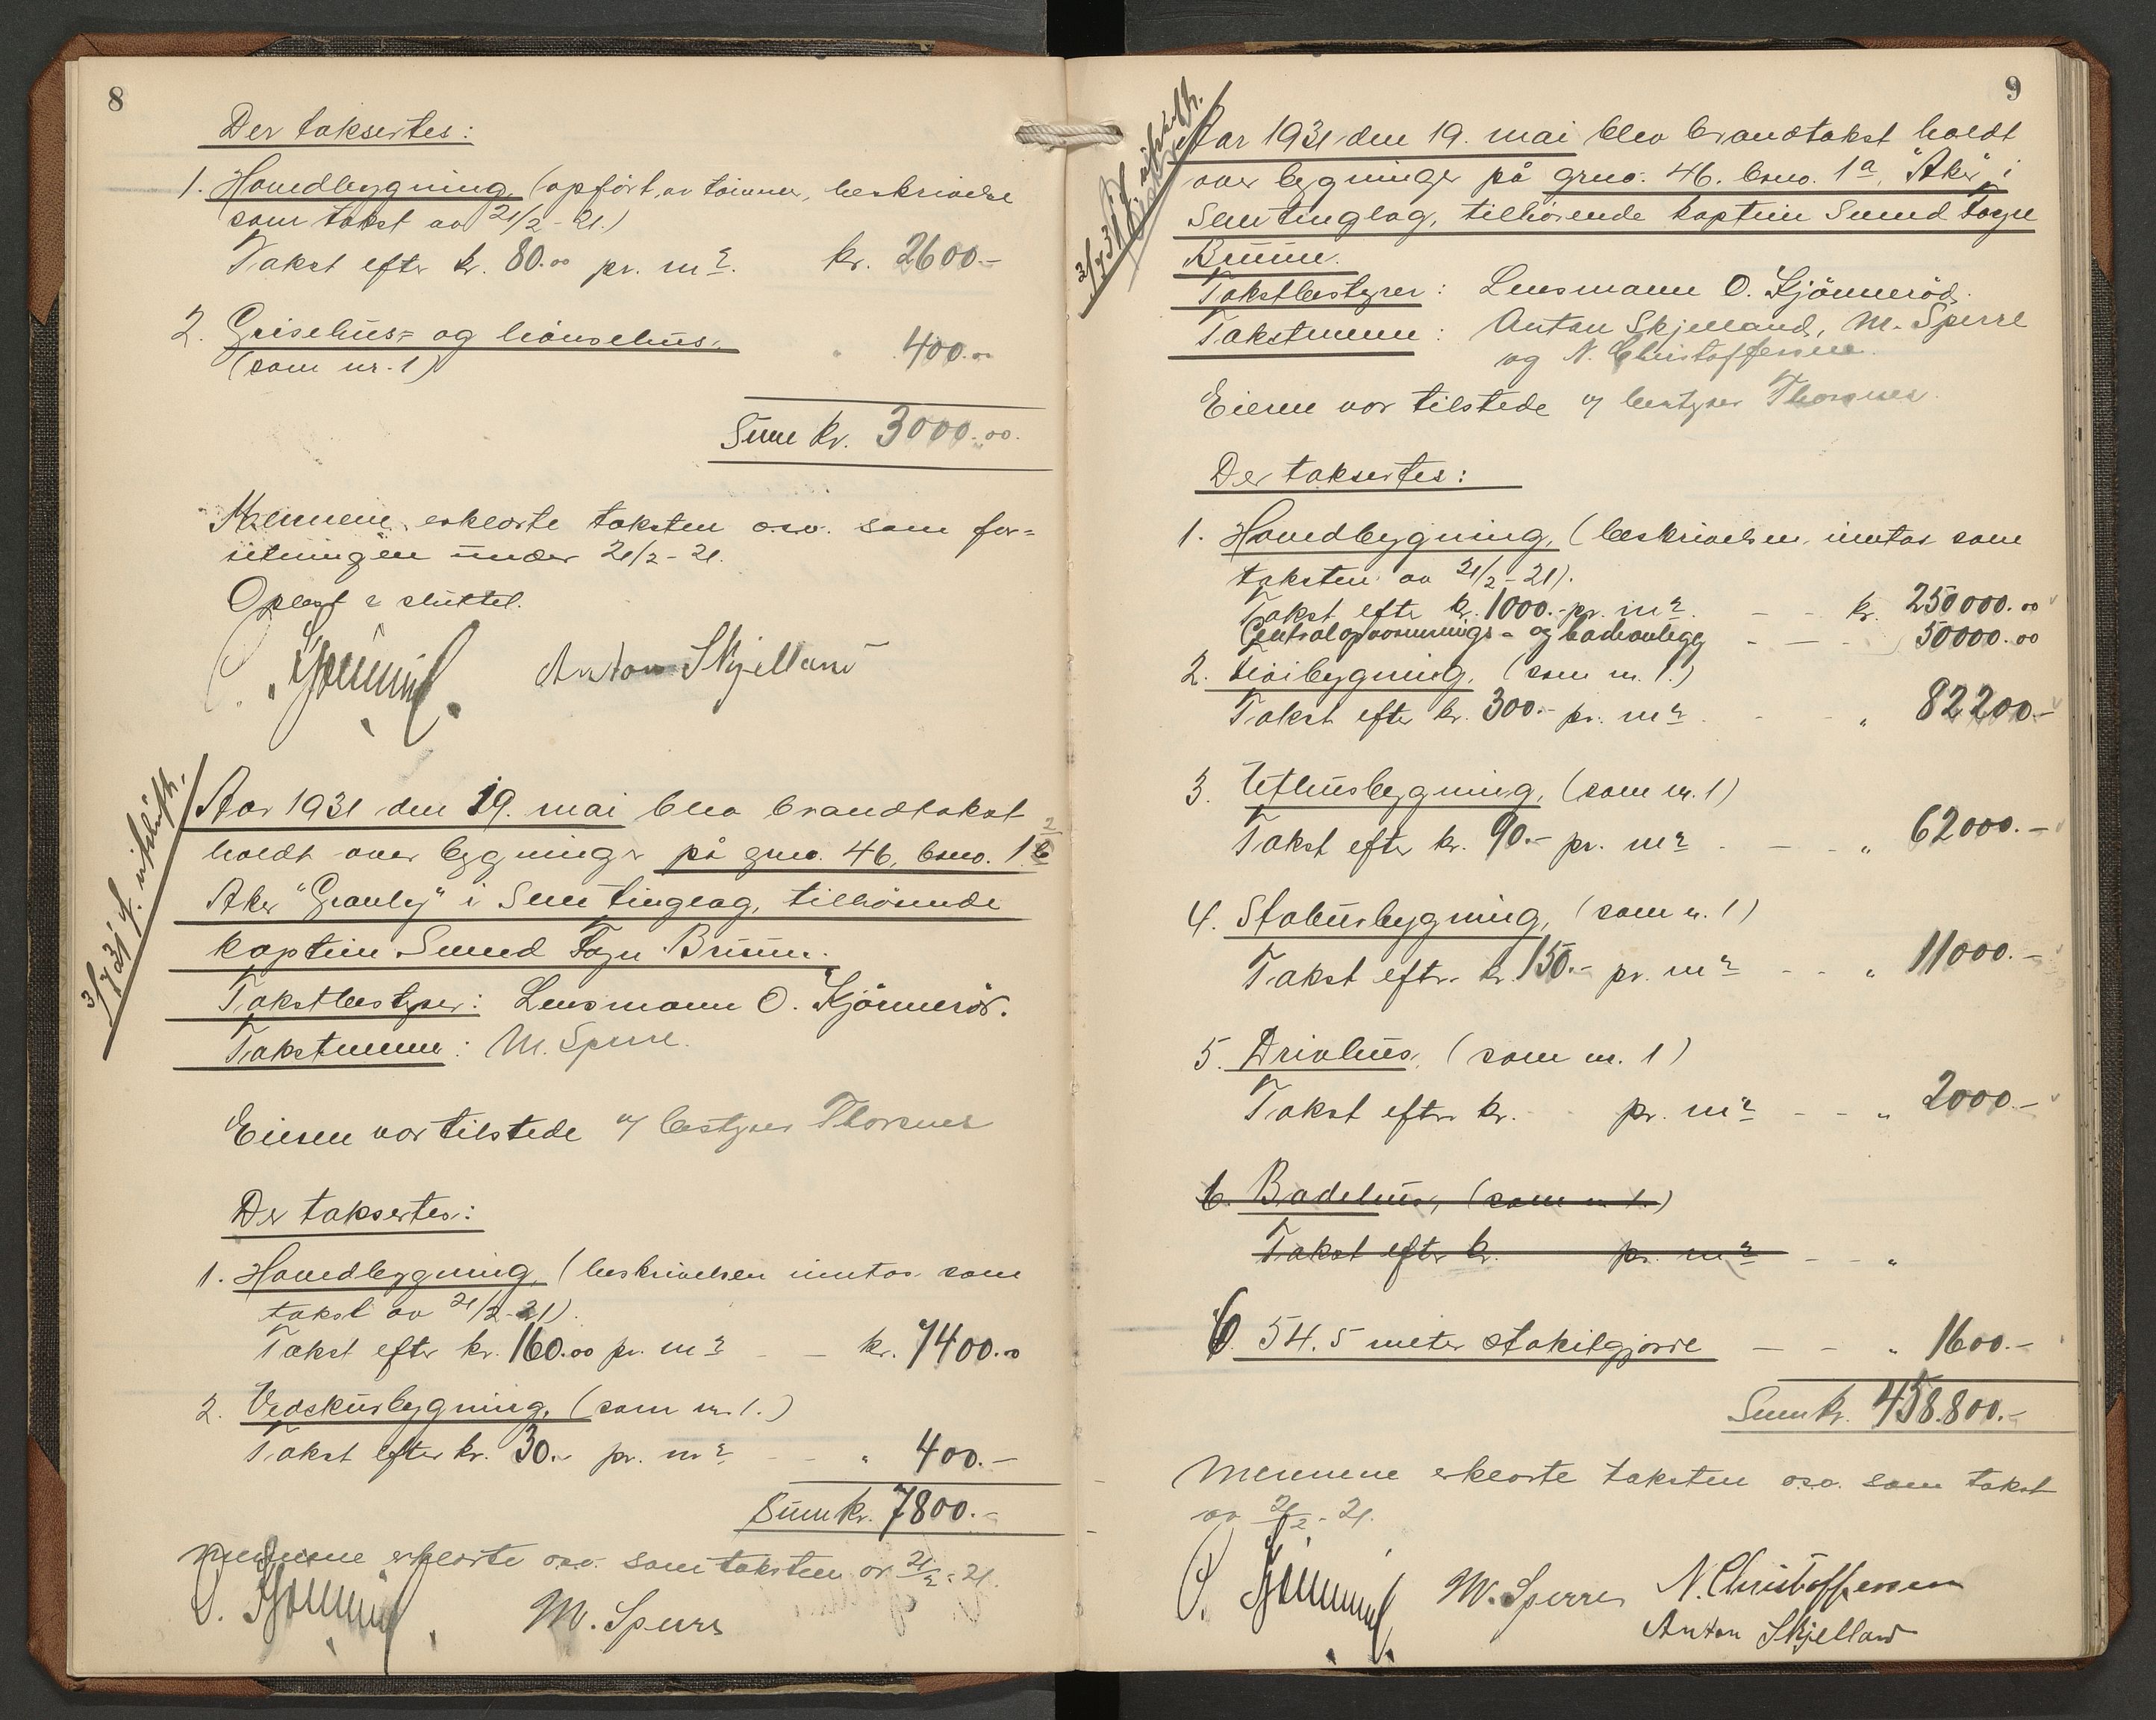 8
Der taksertes:
1. Hovedbygning, (opført av tømmer, beskrivelse
som takst av 21/2-21.)
Takst efter kr. 80.00 pr. m². kr. 2600.-
2. Grisehus- og hønsehus.
(som nr. 1) " 400.00
Sum kr. 3000.00.
Mennene erklærte taksten o.s.v. som for-
retningen under 21/2-21.
Oplest &
Anton Skjelland
3/7 31 utskrift.
Aar 1931 den 19. mai blev brandtakst
holdt over bygninger på grno. 46, bno. 1
Aker "Granly" i Sem tinglag, tilhørende
kaptein Svend Foyn Bruun.
Takstbestyrer: Lensmann O. Kjønnerød.
Takstmenn: M. Sperre.
Eieren var tilstede v/ bestyrer Thorsnes
Der taksertes:
1. Hovedbygning, (beskrivelsen inntas som
takst av 21/2-21).
Takst efter kr. 160.00 pr. m² - - kr. 7400.00
2. Vedskursbygning, (som nr. 1.)
Takst efter kr. 30.- pr. m² - - " 400.-
Sum kr. 7800.-
Mennene erklærte o.s.v. som taksten av 21/2-21.
O. Kjønnerød. M. Sperre
9
3/7 31 utskrift.
Aar 1931 den 19. mai blev brandtakst holdt
over bygninger på grno. 46. bno. 1a, "Aker" i
Sem tinglag, tilhørende kaptein Svend Foyn
Bruun.
Takstbestyrer: Lensmann O. Kjønnerød.
Takstmenn: Anton Skjelland, M. Sperre
og N. Christoffersen.
Eieren var tilstede v/ bestyrer Thorsnes.
Der taksertes:
1. Hovedbygning, (beskrivelsen inntas som
taksten av 21/2-21).
Takst efter kr. 1000.- pr. m². - - kr. 250000.00
Centralopvarmnings- og badeanlegg - - - 50000.00
2. Sidebygning, (som nr. 1.)
Takst efter kr. 300.- pr. m² - - " 82200.-
3. Uthusbygning, (som nr. 1)
Takst efter kr. 90.- pr. m² - - " 62000.-
4. Stabursbygning, (som nr. 1)
Takst efter kr. 150.- pr. m² - - " 11000.-
5. Drivhus, (som nr. 1)
Takst efter kr. pr. m² - - " 2000.-
6. Badehus, (som nr 1.)
Takst efter kr. pr. m² - - "
6. 54.5 meter stakitgjerde - - " 1600.-
Sum kr. 458.800.-
Mennene erklærte taksten o.s.v. som takst
av 21/2-21.
O. Kjønnerød. M. Sperre N. Christoffersen
Anton Skjelland